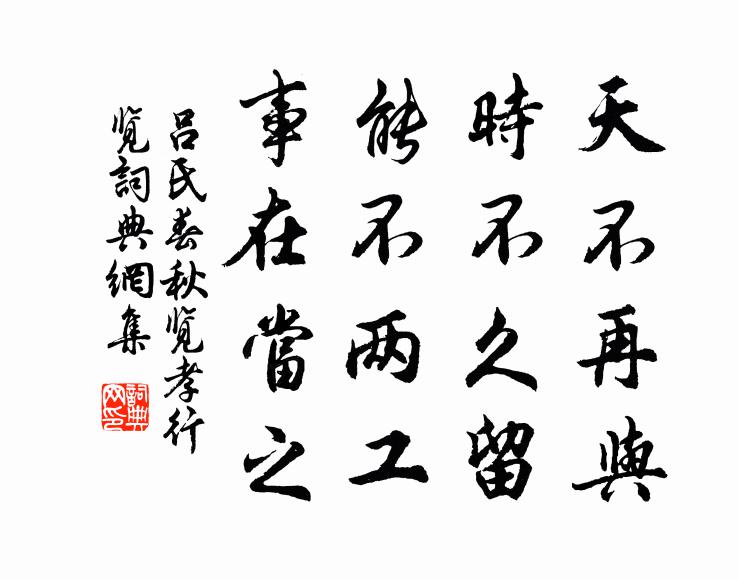 天不再與
時不久留
能不两工
事在當之
呂氏春秋覽孝行
覽詞典網集
詞典网印